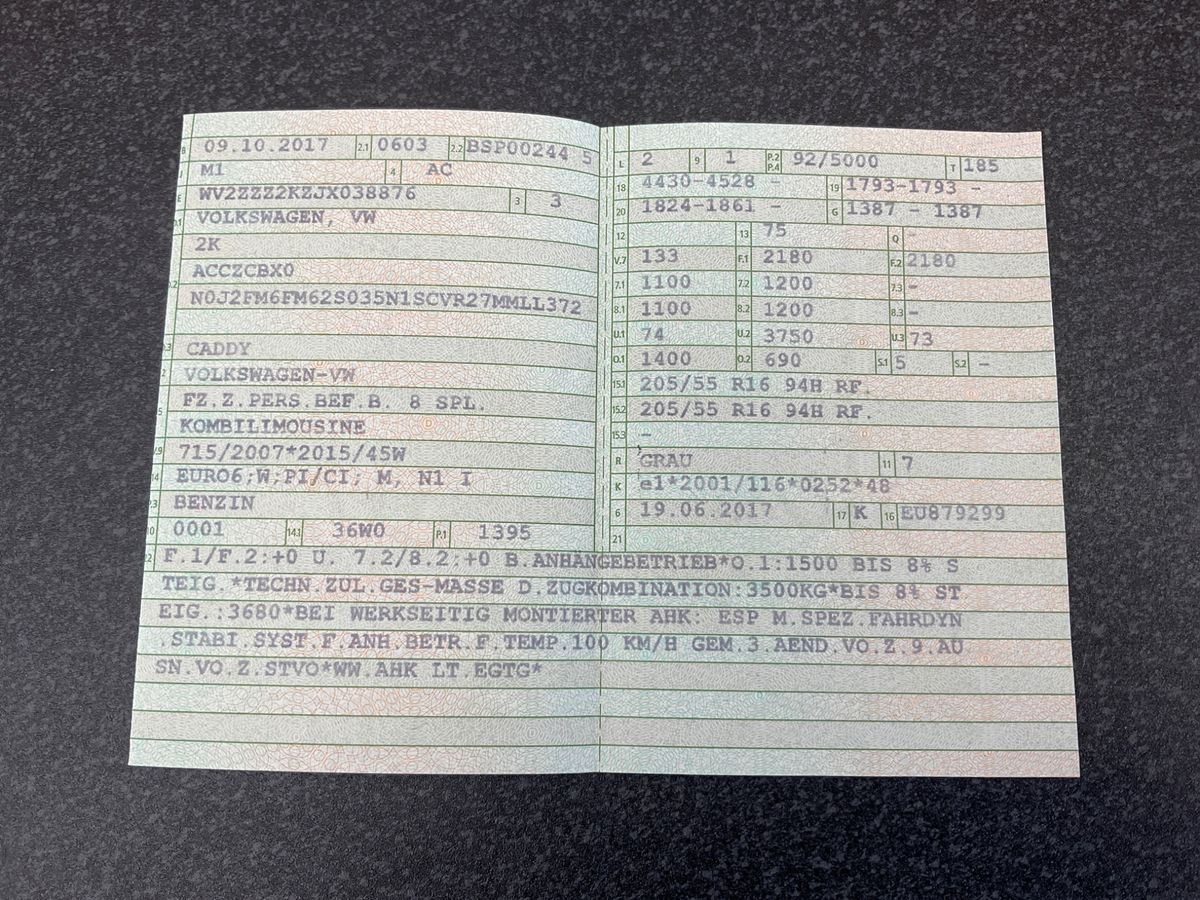 B 09.10.2017 2.1 0603 2.2 BSP00244 5
J M1 4 AC
E WV2ZZZ2KZJX038876 3 3
D.1 VOLKSWAGEN, VW
2K
ACCZCBX0
D.2 N0J2FM6FM62S035N1SCVR27MMLL372
D.3 CADDY
2 VOLKSWAGEN-VW
5 FZ.Z.PERS.BEF.B. 8 SPL.
KOMBILIMOUSINE
V.9 715/2007*2015/45W
14 EURO6;W;PI/CI; M, N1 I
P.3 BENZIN
10 0001 14.1 36W0 P.1 1395
L 2 9 1 P.2 P.4 92/5000 T 185
18 4430-4528 - 19 1793-1793 -
20 1824-1861 - G 1387 - 1387
12 13 75 Q -
V.7 133 F.1 2180 F.2 2180
7.1 1100 7.2 1200 7.3 -
8.1 1100 8.2 1200 8.3 -
U.1 74 U.2 3750 U.3 73
O.1 1400 O.2 690 S.1 5 S.2 -
15.1 205/55 R16 94H RF.
15.2 205/55 R16 94H RF.
15.3 -
R GRAU 11 7
K e1*2001/116*0252*48
6 19.06.2017 17 K 16 EU879299
21
22 F.1/F.2:+0 U. 7.2/8.2:+0 B.ANHÄNGEBETRIEB*O.1:1500 BIS 8% S
TEIG.*TECHN.ZUL.GES-MASSE D.ZUGKOMBINATION:3500KG*BIS 8% ST
EIG.:3680*BEI WERKSEITIG MONTIERTER AHK: ESP M.SPEZ.FAHRDYN
.STABI.SYST.F.ANH.BETR.F.TEMP.100 KM/H GEM.3.AEND.VO.Z.9.AU
SN.VO.Z.STVO*WW.AHK LT.EGTG*